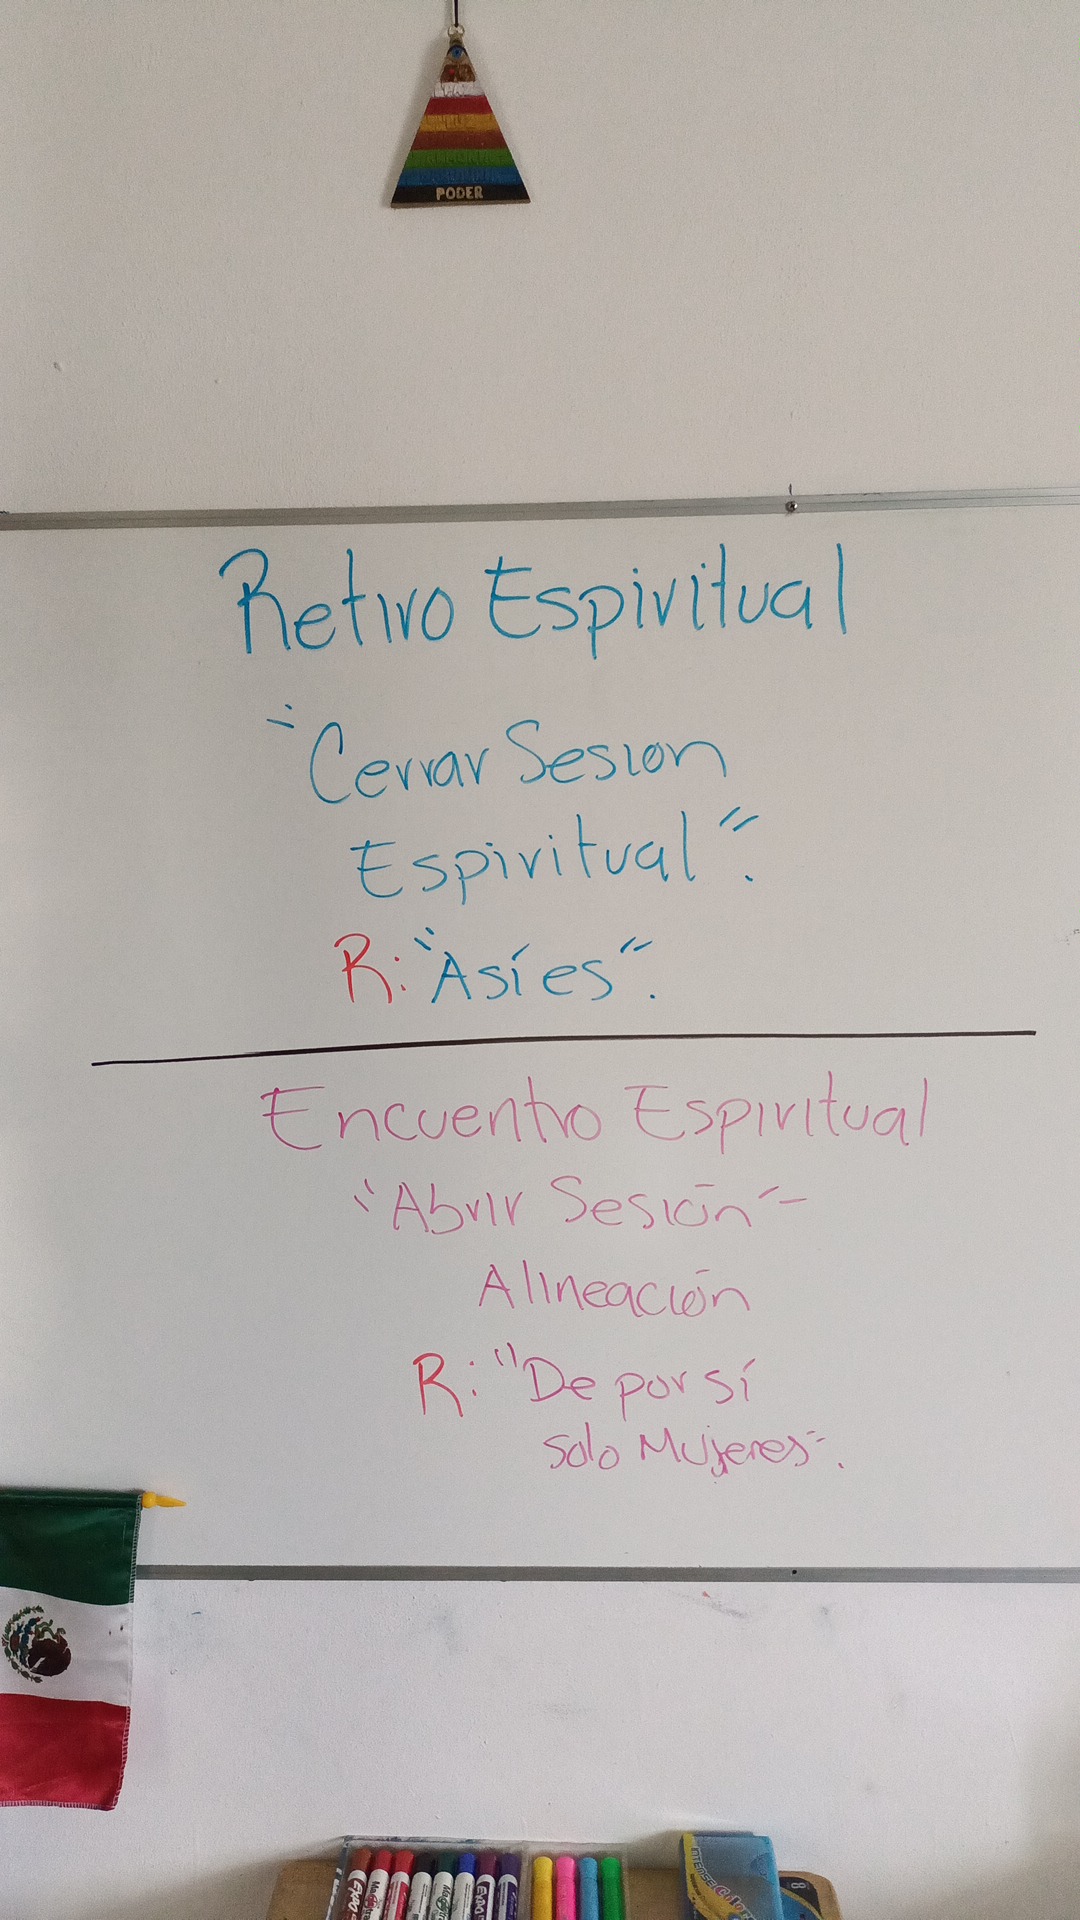 PODER
Retiro Espiritual
"Cerrar Sesion
Espiritual".
R: "Así es".
Encuentro Espiritual
"Abrir Sesión"
Alineación
R: "De por sí
solo Mujeres".
EXPO
EXPO